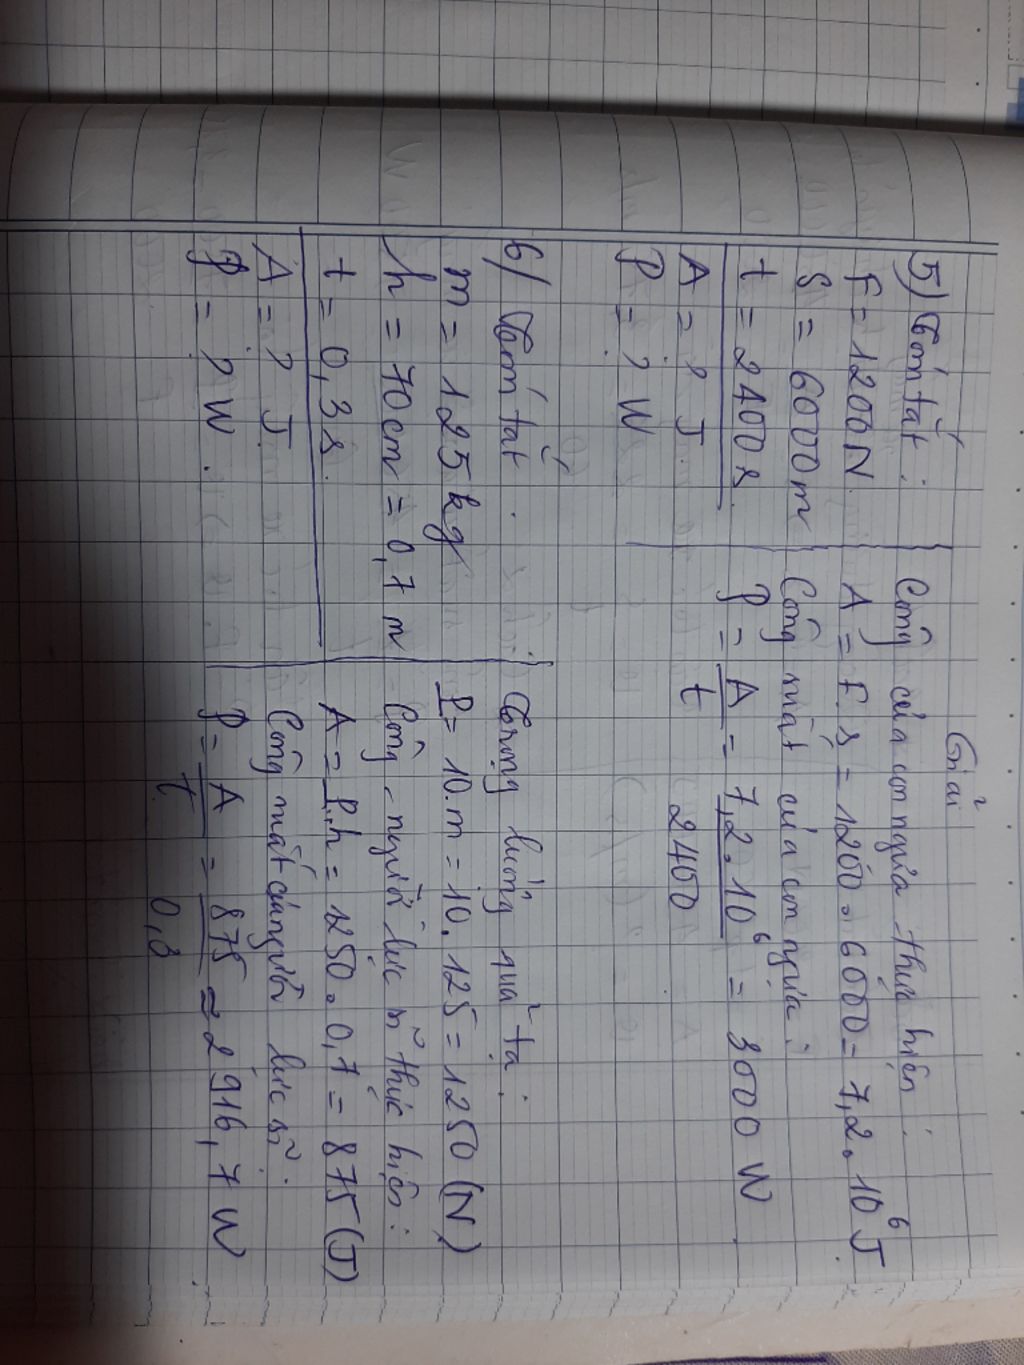 Giải
5) Tóm tắt:
F = 1200N
S = 6000m
t = 2400s
A = ? J
P = ? W
Công của con ngựa thực hiện:
A = F.s = 1200.6000 = 7,2.10⁶ J
Công suất của con ngựa:
P = A/t = 7,2.10⁶/2400 = 3000 W
6) Tóm tắt.
m = 125kg
h = 70cm = 0,7m
t = 0,3s
A = ? J
P = ? W.
Trọng lượng quả tạ:
P = 10.m = 10.125 = 1250 (N)
Công người lực sĩ thực hiện:
A = P.h = 1250.0,7 = 875 (J)
Công suất của người lực sĩ.
P = A/t = 875/0,3 = 2916,7 W